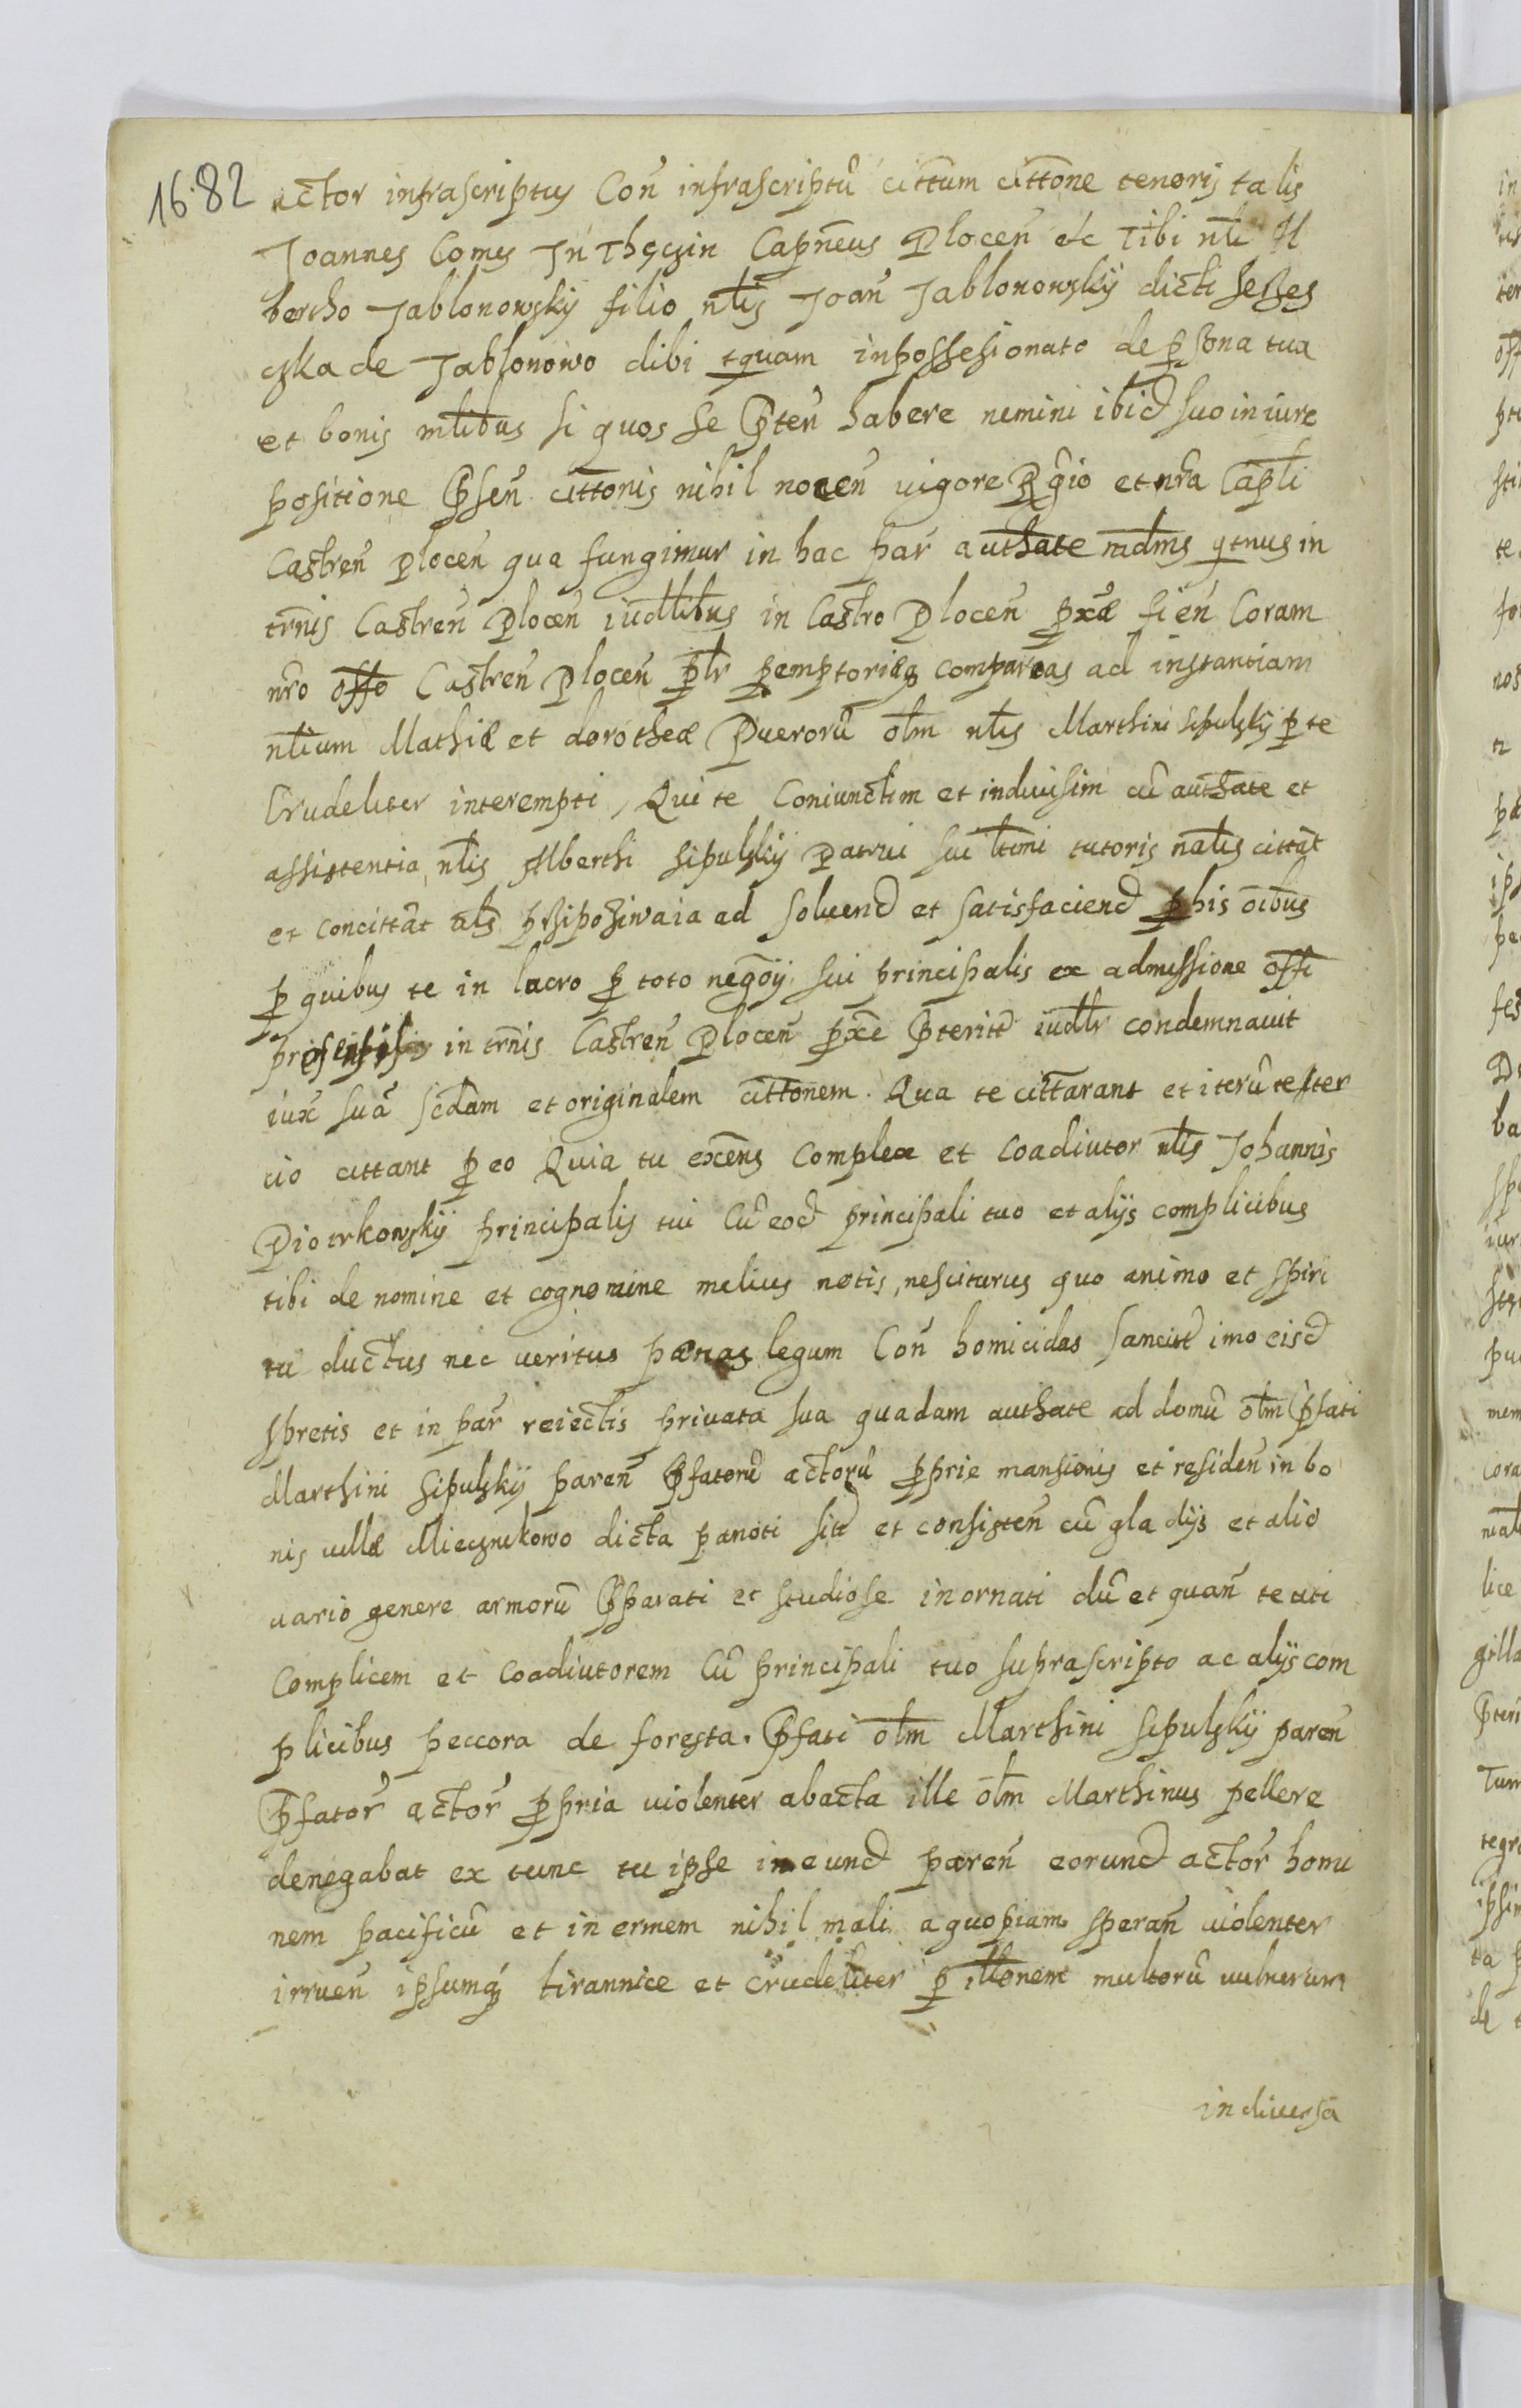 1682
actor infrascriptus Coñ infrascriptũ cittum cittone tenoris talis
Joannes Comes In Thęczin Capneus Plocen̄ etc Tibi nli Al
bertho Jablonowskÿ filio nlis Joan̄ Jablonowskÿ dicti
czka de Jablonowo dibi tquam inpossesionato de psona tua
et bonis mlibus si quos se Pten̄ habere nemini ibid suo in iure
positione Psen̄ cittonis nihil nocen̄ uigore Rgio et nra Capli
Castren̄ plocen̄ qua fungimur in hac par authate mdms qtnus in
trnis Castren̄ Plocen̄ iudlibus in Castro Plocen̄ pxae fien̄ Coram
nro offo Castren̄ Plocen̄ plr pemptorieq compareas ad instantiam
nlium Mathiæ et dorotheæ Puerorũ olm nlis Marthini Sipulskÿ p te
Crudeliter interempti, Qui te Coniunctim et indiuisim cũ authate et
assistentia nlis Alberthi Sipulskÿ Patrui sui ltimi tutoris nalis cittat
et concittat als psiposiwaia ad soluend et satisfaciend p his oibus
p quibus te in lucro p toto negoÿ sui principalis ex admissione offi
in trnis Castren̄ Plocen̄ pxe Pterit iudlr condemnauit
iux suã scdam et originalem cittonem. Qua te cittarant et iterũ te ter
cio cittant p eo Quia tu exens Complex et Coadiutor nlis Johannis
Piotrkowskÿ principalis tui Cũ eod principali tuo et alÿs complicibus
tibi de nomine et cognomine melius notis, nesciturus quo animo et spiri
tu ductus nec ueritus pænas legum Coñ homicidas sancit imo eisd
spretis et in par reiectis priuata sua quadam authate ad domũ olm Pfati
Marthini Sipulskÿ paren̄ Pfatorũ actorũ pprie mansionis et residen̄ in bo
nis uillæ Miecznikowo dicta panoti sit et consisten̄ cũ gladÿs et alio
uario genere armorũ Pparati et studiose inornati dũ et quan̄ te uti
Complicem et Coadiutorem Cũ principali tuo suprascripto ac alÿs com
plicibus peccora de foresta. Pfati olm Marthini Sipulskÿ paren̄
Pfator̃ actor̃ ppria uiolenter abacta ille olm Marthinus pellere
denegabat ex tunc tu ipse in eund paren̄ eorund actor̃ homi
nem pacificũ et inermem nihil mali a quopiam speran̄ uiolenter
irruen̄ ipsumq tirannice et crudeliter p illonem multorũ uulnerum
in diuersa